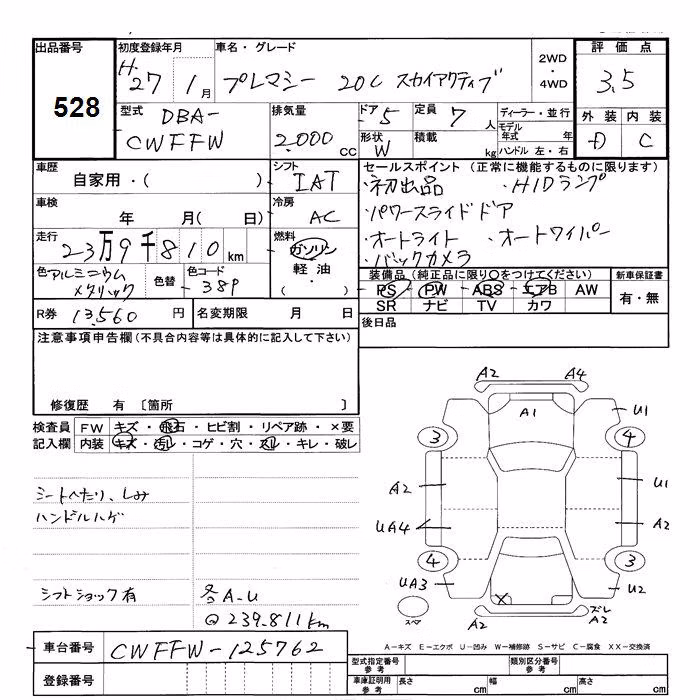 出品番号
528
初度登録年月
H. 27 1月
車名・グレード
プレマシー 20C スカイアクティブ
2WD
・
4WD
評価点
3.5
外装 内装
D C
型式
DBA-
CWFFW
排気量
2.000
cc
ドア 5
定員 7 人
形状 W
積載 kg
ディーラー・並行
モデル年式 年
ハンドル 左・右
車歴
自家用・( )
シフト
IAT
車検
年 月( 日)
冷房
AC
走行
23万9千810 km
燃料
ガソリン
軽油
( ・ )
色 アルミニウムメタリック
色替
色コード
38P
R券 13,560 円
名変期限 月 日
セールスポイント (正常に機能するものに限ります)
・初出品 ・HIDランプ
・パワースライドドア
・オートライト ・オートワイパー
・バックカメラ
装備品(純正品に限り○をつけてください)
PS PW ABS エアB AW
SR ナビ TV カワ
新車保証書
有・無
後日品
注意事項申告欄(不具合内容等は具体的に記入して下さい)
修復歴 有 〔箇所 〕
検査員
記入欄
FW キズ・飛石・ヒビ割・リペア跡・×要
内装 キズ・汚レ・コゲ・穴・スレ・キレ・破レ
シートへたり、しみ
ハンドルハゲ
シフトショック有
各A-U
@239.811km
A2 A4
A1
U1
3 4
A2 U1
UA4 A2
4 3
UA3 U2
X
スペア
A2
ズレ
A2
A-キズ E-エクボ U-凹み W-補修跡 S-サビ C-腐食 XX-交換済
車台番号
CWFFW-125762
登録番号
型式指定番号
参考
類別区分番号
参考
車庫証明用
参考
長さ cm
幅 cm
高さ cm